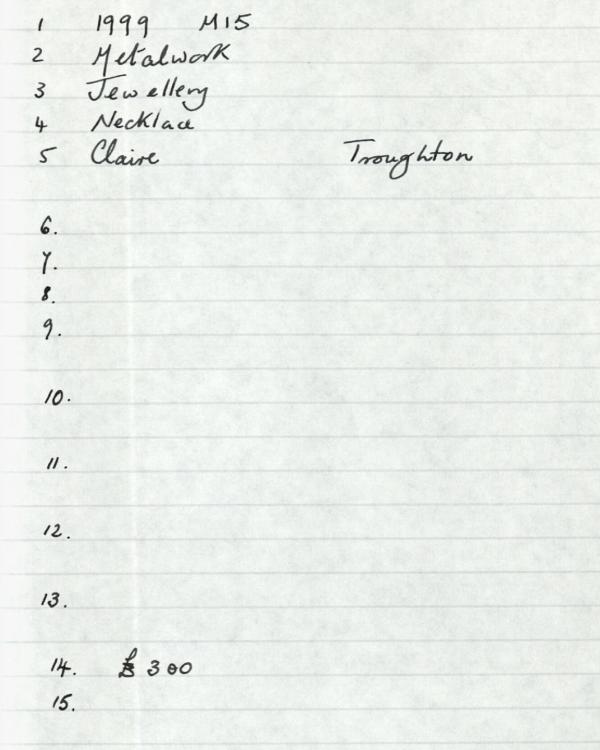 1 1999 M15
2 Metalwork
3 Jewellery
4 Necklace
5 Claire Troughton
6.
7.
8.
9.
10.
11.
12.
13.
14. £ 300
15.